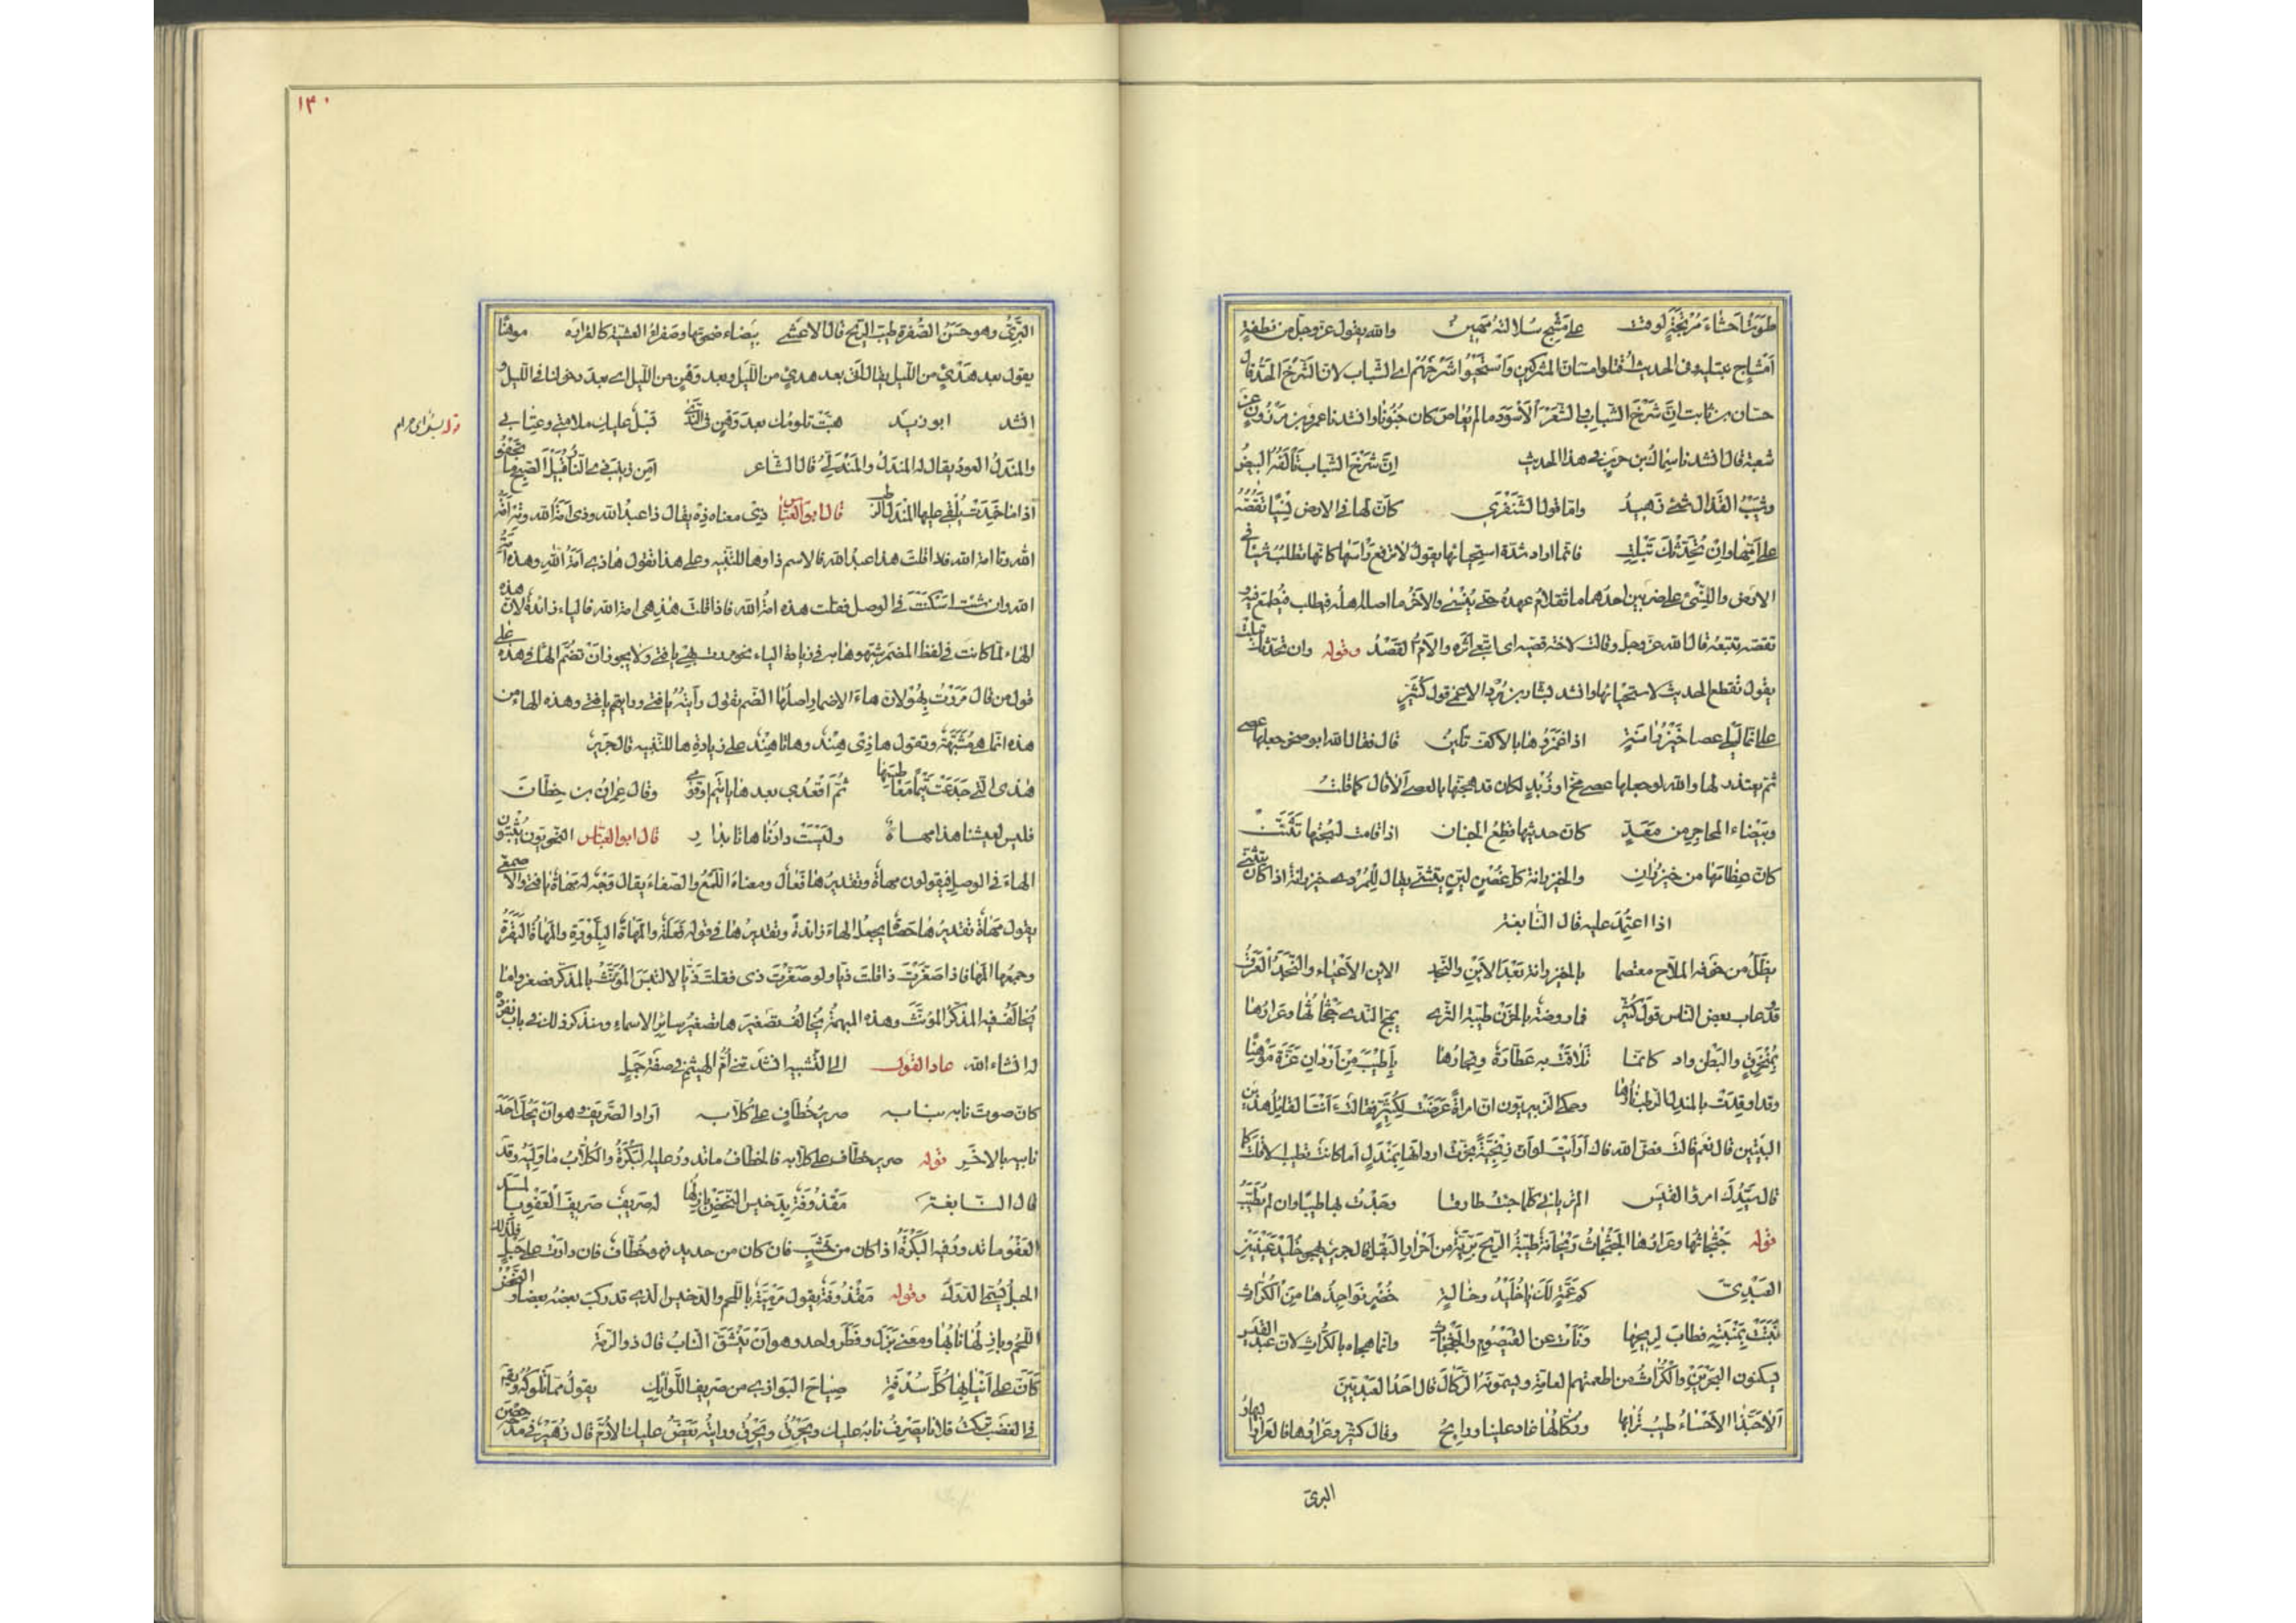 طوت احشاء مرتجة لوقت على مشج سلالته مهين والله يقول عز وجل من نطفة
امشاج نبتليه وفى الحديث اقتلوا مسان المشركين واستحيوا شرخهم اى الشباب لان الشرخ الحد قال
حسان بن ثابت ان شرخ الشباب والشعر الاسود ما لم يعاص كان جنونا وانشدنا عمرو بن مرزوق عن
شعبة قال انشدنا سماك بن حرب فى هذا الحديث ان شرخ الشباب تألفه البيض
وشيب القذال شئ زهيد واما قول الشنفرى كان لها فى الارض نسيا تقصه
على امها وان تحدثك تبلت فانما اراد شدة استحيائها يقول لا ترفع راسها كانها تطلب شيئا فى
الارض والنسئ على ضربين احدهما ما تقادم عهده حتى ينسى والاخر ما اضله اهله فيطلب فيطمع فيه
تقصه تتبعه قال الله عز وجل وقالت لاخته قصيه اى اتبعى اثره والام القصد وقوله وان تحدثك تبلت
يقول تقطع الحديث لاستحيائها وانشد بشار بن برد الاعمى قول كثير
الا انما ليلى عصا خيزرانة اذا غمزوها بالاكف تلين قال فقال لله ابو صخر جعلها عصى
ثم يعتذر لها والله لو جعلها عصى مخ او زبد لكان قد هجنها بالعصى الا قال كما قلت
وبيضاء المحاجر من معد كان حديثها قطع الجنان اذا قامت لسبحتها تثنت
كان عظامها من خيزران والخيزرانة كل غصن لين يتثنى يقال للمردى خيزرانة اذا كان يتثنى
اذا اعتمد عليه قال النابغة
يظل من خوفه الملاح معتصما بالخيزرانة بعد الاين والنجد الاين الاعياء والنجد العرق
قد عاب بعض الناس قول كثير فما روضة بالحزن طيبة الثرى يمج الندى جثجاثها وعرارها
بمنخرق من بطن واد كانما تلاقت به عطارة وتجارها باطيب من اردان عزة موهنا
وقد اوقدت بالمندل الرطب نارها وحكى الزبيريون ان امراة عرضت لكثير فقالت انت القائل هذين
البيتين قال نعم قالت فض الله فاك ارايت لو ان زنجية بخرت اردانها بمندل اما كانت تطيب الا قلت كما
قال سيدك امرؤ القيس الم تريانى كلما جئت طارقا وجدت بها طيبا وان لم تطيب
قوله جثجاثها وعرارها الجثجاث ريحانة طيبة الريح برية من احرار البقل قال جرير يهجو خليد عينين
العبدى كم عمة لك يا خليد وخالة خضر نواجذها من الكراث
نبتت بمنبته فطاب لريحها ونات عن القيصوم والجثجاث وانما هجاه بالكراث لان عبد القيس
يسكنون البحرين والكراث من اطعمتهم العامة ويسمونه الركال قال احد العبديين
الا حبذا الاحساء طيب ترابها وركالها غاد علينا ورايح وقال كثير وعرارها فالعرار البهار
البرى
١٣٠
البرى وهو حسن الصفرة طيب الريح قال الاعشى بيضاء ضحوتها وصفراء العشية كالعرارة موهنا
يقول بعد هدئ من الليل يقال اتى بعد هدئ من الليل وبعد وهن من الليل اى بعد دخولنا فى الليل و
انشد ابو زيد هبت تلومك بعد وهن فى الندى بسل عليك ملامتى وعتابى
قوله بسل اى حرام
والمندل العود يقال له المندل والمندلى قال الشاعر امن زينب ذى النار قبيل الصبح ما تخبو
اذا ما خمدت يلقى عليها المندل الرطب قال ابو العباس ذى معناه ذه يقال ذا عبد الله وذى امة الله وذه امة
الله وتا امة الله فاذا قلت هذا عبد الله فالاسم ذا وها للتنبيه وعلى هذا تقول هاذى امة الله وهذه امة
الله وان شئت اسكنت فى الوصل فقلت هذه امة الله فاذا قلت هذهى امة الله فالياء زائدة لان هذه
الهاء لما كانت فى لفظ المضمر شبهوها به فى زيادة الياء نحو مررت بهى يا فتى ولا يجوز ان تضم الهاء فى هذه على
قول من قال مررت بهو لان هاء الاضمار اصلها الضم تقول رايته يا فتى ورايتهم يا فتى وهذه الهاء من
هذه انما هى مشبهة وتقول هاذى هند وهاتا هند على زيادة ها للتنبيه قال جرير
هذى التى جدعت تيما معاطسها ثم اقعدى بعدها يا تيم او قومى وقال عمران بن حطان
فليس لعيشنا هذا مهاة وليست دارنا هاتا بدار قال ابو العباس النحويون يثبتون
الهاء فى الوصل فيقولون مهاة وتقديرها فعال ومعناه اللمع والصفاء يقال وجه له مهاة يا فتى والاصمعى
يقول مهاة تقديرها حصاة يجعل الهاء زائدة وتقديرها فى قوله فعلة والمهاة البلورة والمهاة البقرة
وجمعها المها فاذا صغرت ذا قلت ذيا ولو صغرت ذى فقلت ذيا لالتبس المؤنث بالمذكر فصغروا ما
يخالف فيه المذكر المؤنث وهذه المبهمة يخالف تصغيرها تصغير ساير الاسماء وسنذكر ذلك فى باب نفرده
له انشاء الله عاد القول الى التشبيه انشدتنى ام الهيثم فى صفة جمل
كان صوت نابه بنابه صرير خطاف على كلابه اراد الصريف وهو ان يحك احد
نابيه بالاخر قوله صرير خطاف على كلابه فالخطاف ما تدور عليه البكرة والكلاب ما وليه وقد
قال النابغة مقذوفة بدخيس النحض بازلها له صريف صريف القعو بالمسد
القعو ما تدور فيه البكرة اذا كان من خشب فان كان من حديد فهو خطاف فان دارت على حبل فذلك
الحبل يسمى الدرك وقوله مقذوفة يقول مرمية باللحم والدخيس الذى قد ركب بعضه بعضا والنحض
اللحم وبازلها نابها ومعنى بزل وفطر واحد وهو ان ينشق الناب قال ذو الرمة
كان على انيابها كل سدفة صياح البوازى من صريف اللوايك يقول مما تلوكه ويقال
فى الغضب تركت فلانا يصرف نابه عليك ويحرق ويحرق ورايته يعض عليك الارم قال زهير فى مدح حصن